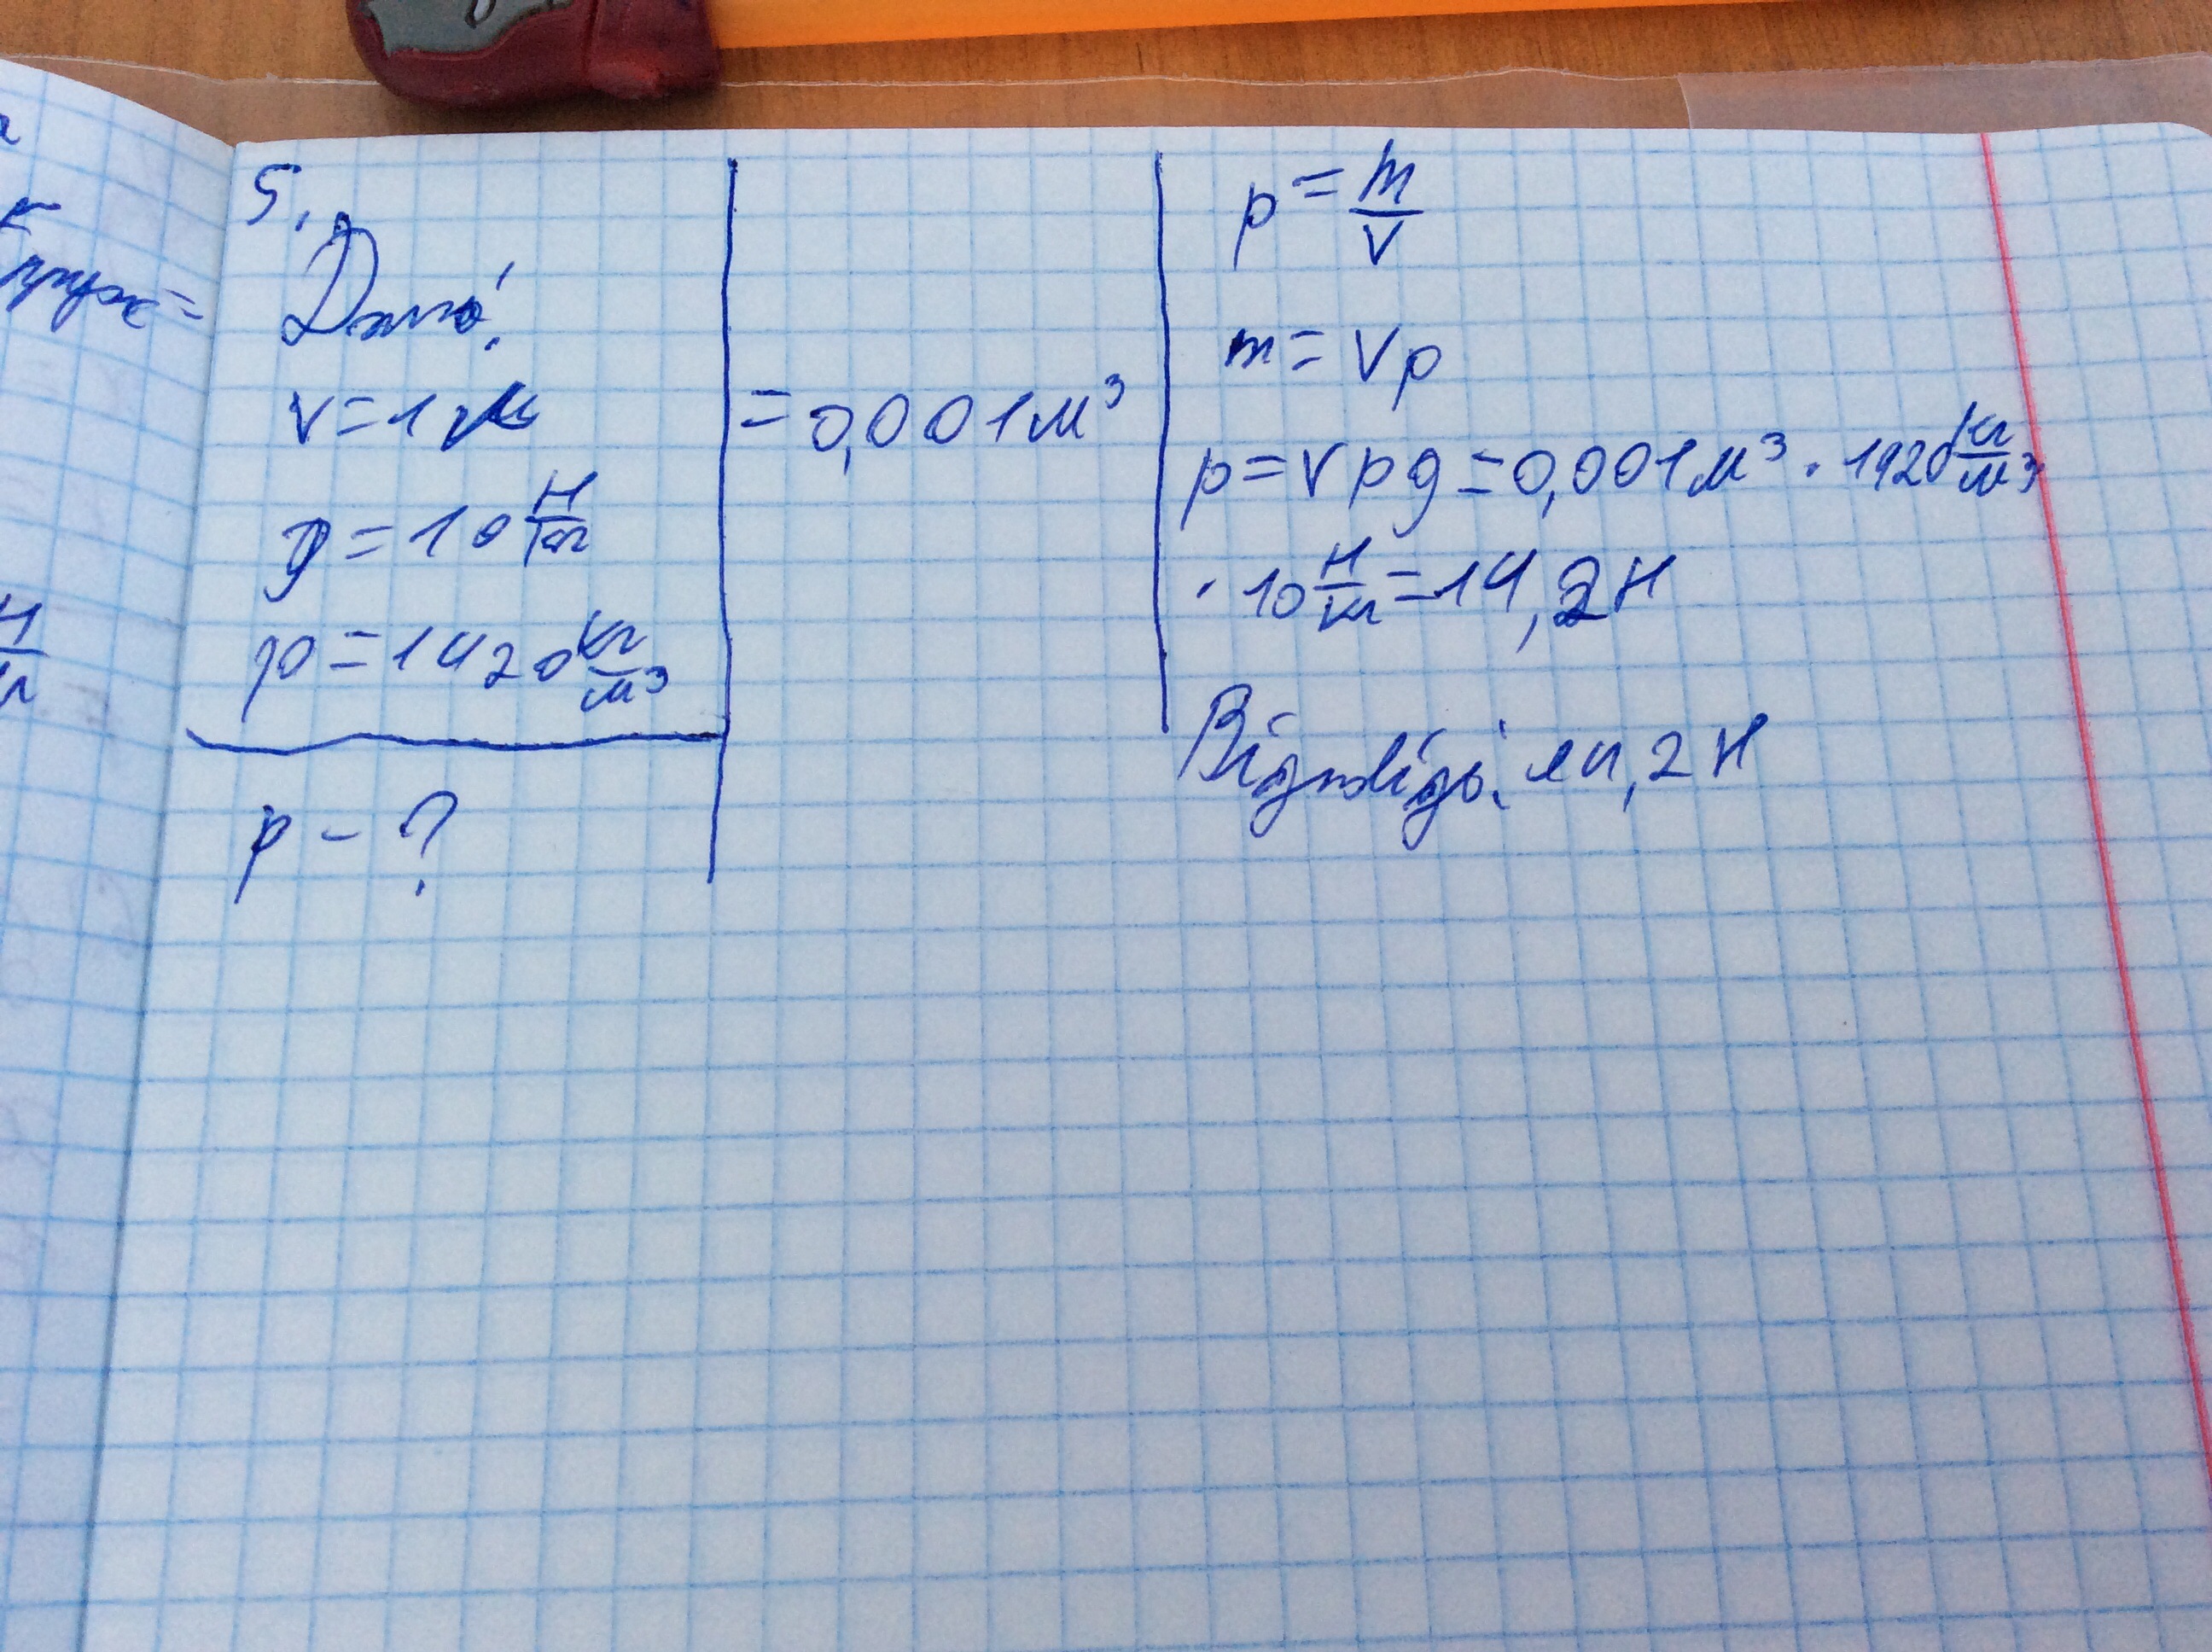 5.
Дано:
V = 1 л
= 0,001 м³
g = 10 Н/кг
ρ = 1420 кг/м³
p - ?
ρ = m/V
m = Vρ
p = Vρg = 0,001 м³ · 1420 кг/м³
· 10 Н/кг = 14,2 Н
Відповідь: 14,2 Н